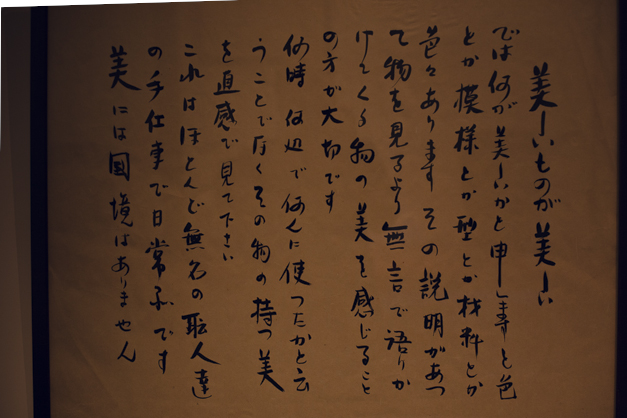 美しいものが美しい
では何が美しいかと申しますと色
とか模様とか型とか材料とか
色々あります その説明があつ
て物を見るより無言で語りか
けてくる物の美を感じること
の方が大切です
何時 何処で何に使つたかと云
うことでなくその物の持つ美
を直感で見て下さい
これはほとんど無名の職人達
の手仕事で日常品です
美には国境はありません